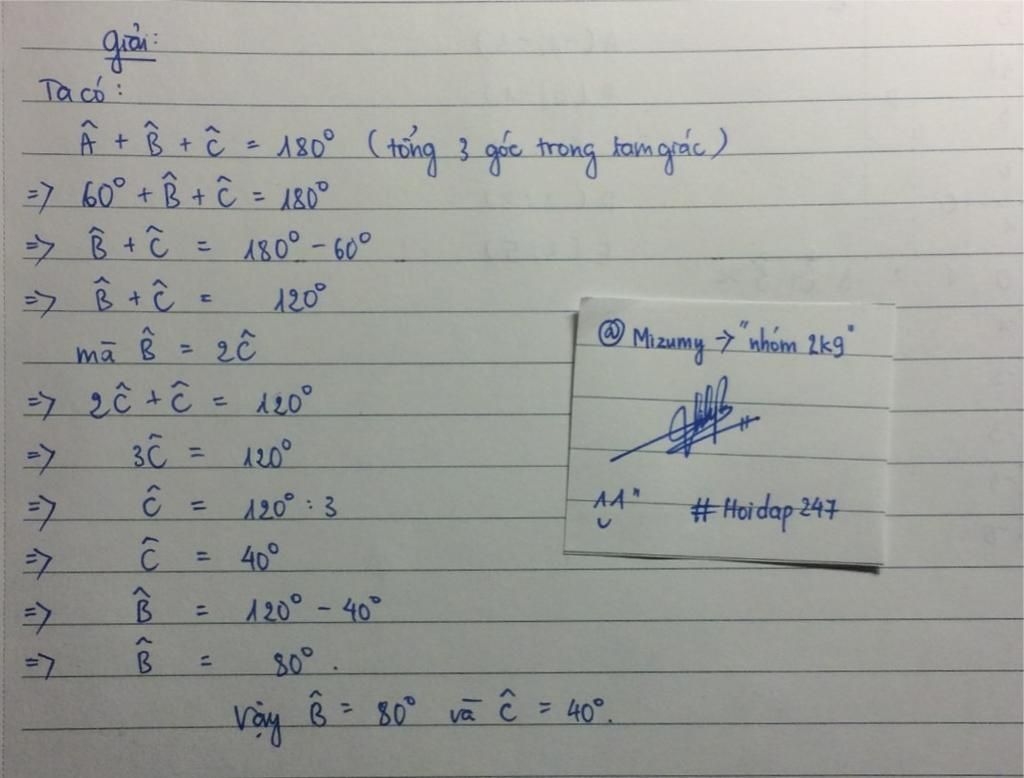 Giải:
Ta có:
Â + B̂ + Ĉ = 180° (tổng 3 góc trong tam giác)
=> 60° + B̂ + Ĉ = 180°
=> B̂ + Ĉ = 180° - 60°
=> B̂ + Ĉ = 120°
mà B̂ = 2Ĉ
=> 2Ĉ + Ĉ = 120°
=> 3Ĉ = 120°
=> Ĉ = 120° : 3
=> Ĉ = 40°
=> B̂ = 120° - 40°
=> B̂ = 80°.
Vậy B̂ = 80° và Ĉ = 40°.
@ Mizumy -> "nhóm 2kg"
# Hoidap247